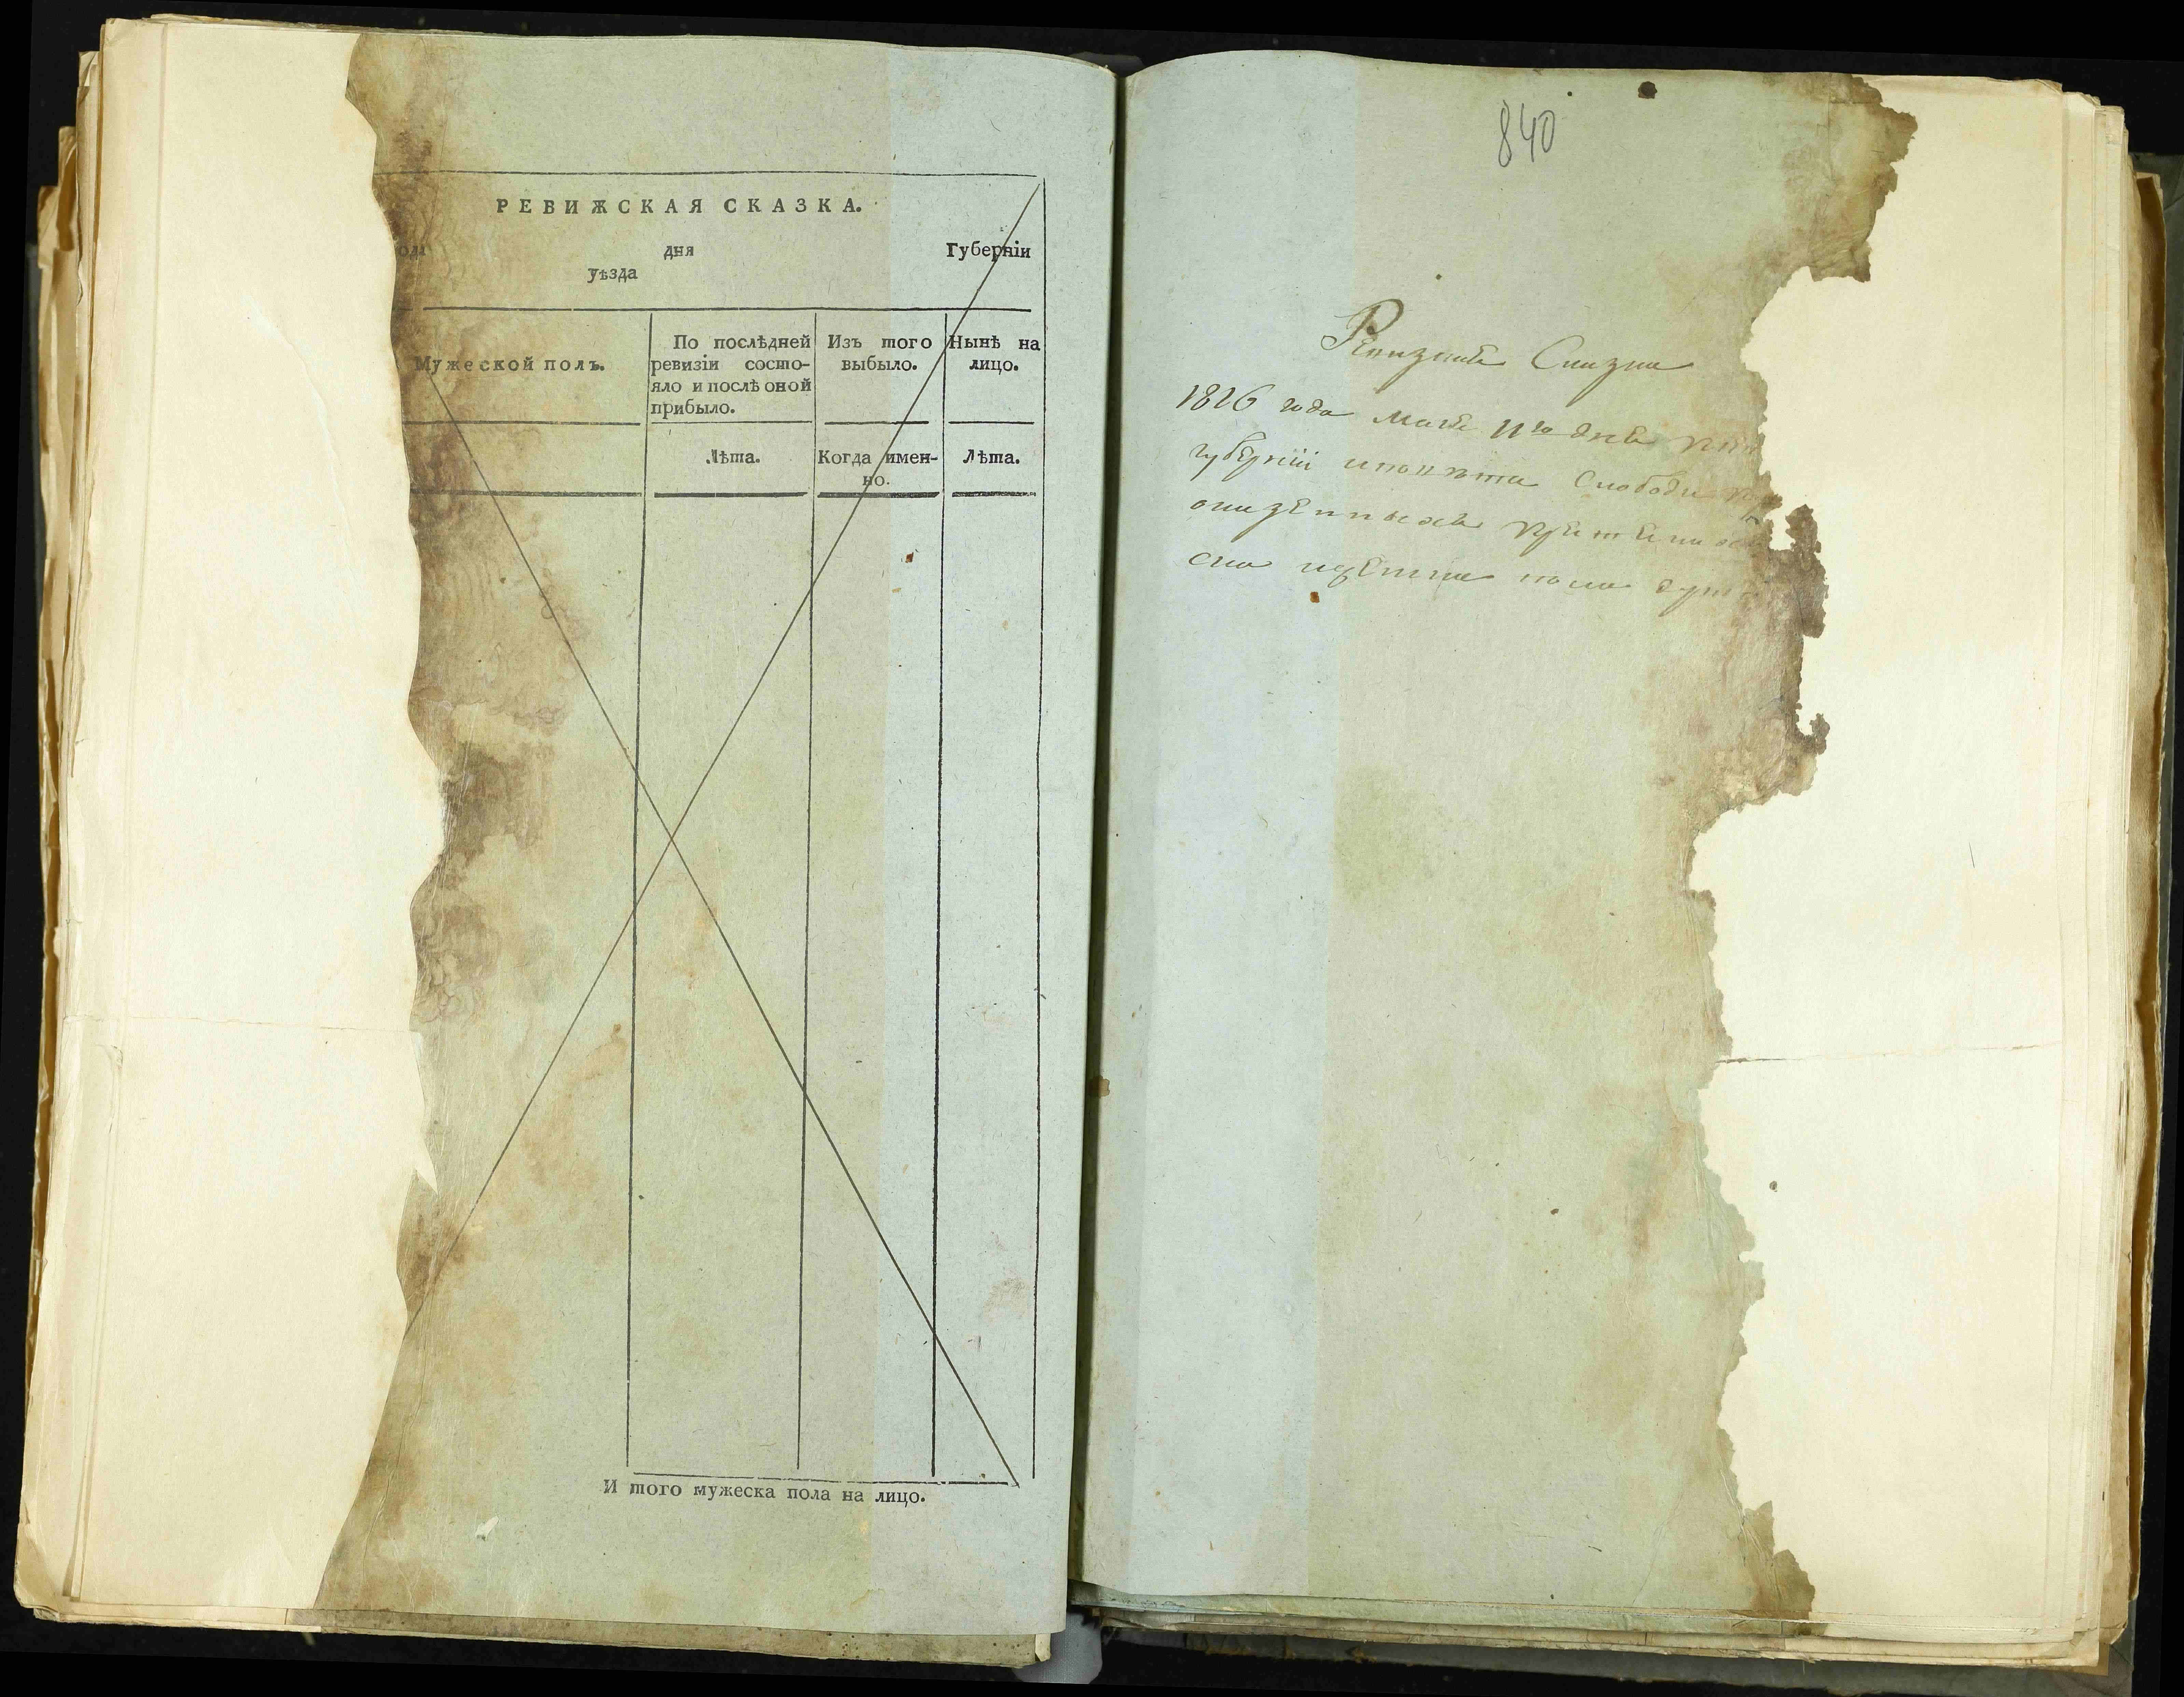 РЕВИЖСКАЯ СКАЗКА.
ода дня Губерніи
уѣзда
Мужеской полъ.
По послѣдней
ревизіи состо-
яло и послѣ оной
прибыло.
Изъ того
выбыло.
Нынѣ на
лицо.
Лѣта.
Когда имен-
но.
Лѣта.
И того мужеска пола на лицо.
840
Ревизская Сказка
1816 года Маія 11го дня
губерніи уезда Слободы
казенныхъ
женска пола